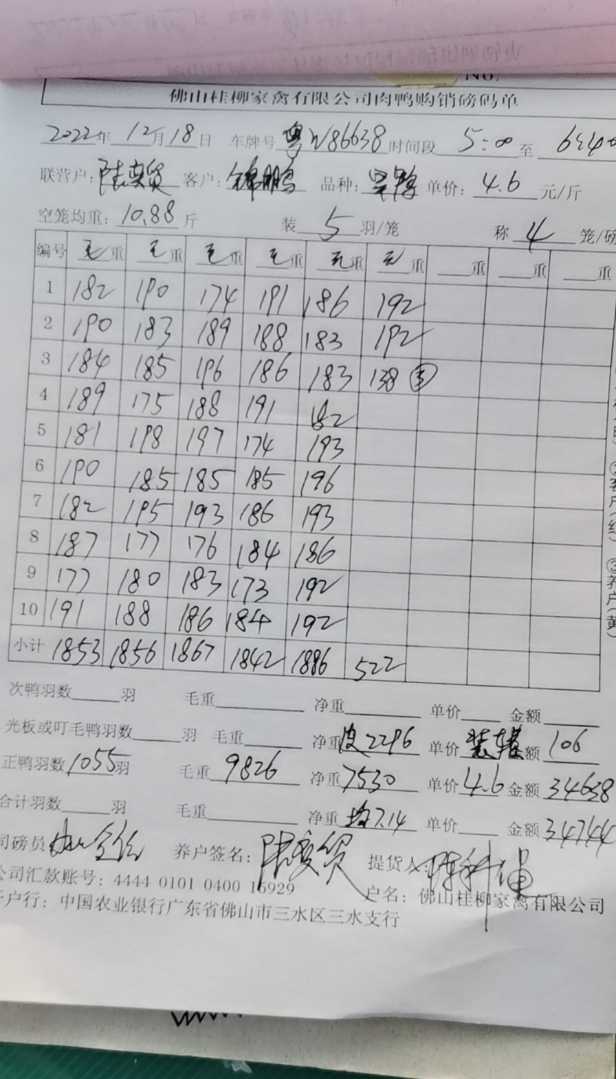 No.
佛山桂柳家禽有限公司肉鸭购销磅码单
2022年 12月18日 车牌号 粤W86638 时间段 5:00 至
联营户: 客户: 锦鹏 品种: 单价: 4.6 元/斤
空笼均重: 10.88 斤 装 5 羽/笼 称 4 笼/磅
编号 毛重 毛重 毛重 毛重 毛重 毛重 重 重 重
1 182 190 174 191 186 192
2 190 183 189 188 183 192
3 184 185 196 186 183 138 ③
4 189 175 188 191 182
5 181 198 197 174 193
6 190 185 185 185 196
7 182 195 193 186 193
8 187 177 176 184 186
9 177 180 183 173 192
10 191 188 186 184 192
小计 1853 1856 1867 1842 1886 522
次鸭羽数 羽 毛重 净重 单价 金额
光板或叮毛鸭羽数 羽 毛重 净重 皮2296 单价 金额 106
正鸭羽数 1055 羽 毛重 9826 净重 7530 单价 4.6 金额 34638
合计羽数 羽 毛重 净重 均7.14 单价 金额 34744
司磅员 养户签名: 提货人
公司汇款账号: 4444 0101 0400 15929 户名: 佛山桂柳家禽有限公司
开户行: 中国农业银行广东省佛山市三水区三水支行